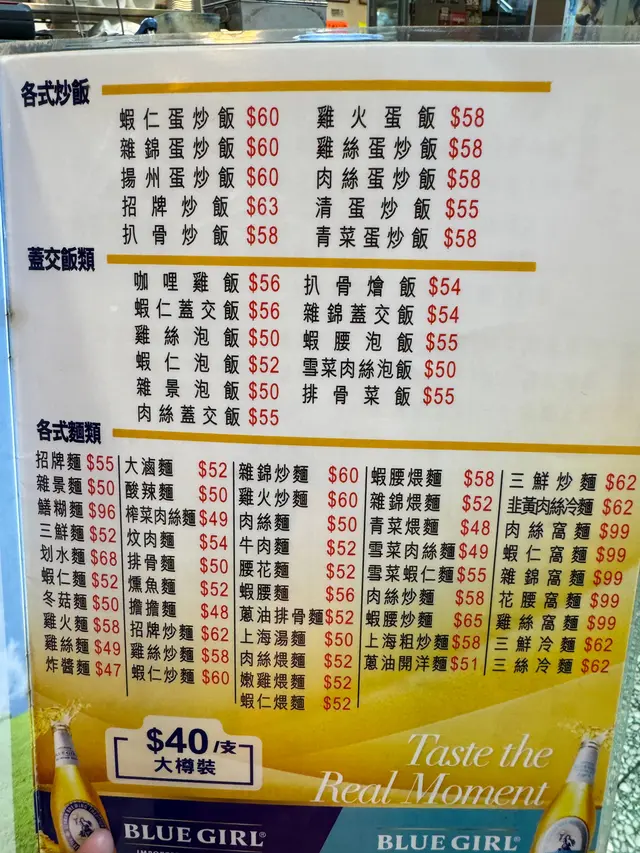 各式炒飯
蝦仁蛋炒飯 $60
雜錦蛋炒飯 $60
揚州蛋炒飯 $60
招牌炒飯 $63
扒骨炒飯 $58
雞火蛋飯 $58
雞絲蛋炒飯 $58
肉絲蛋炒飯 $58
清蛋炒飯 $55
青菜蛋炒飯 $58
蓋交飯類
咖哩雞飯 $56
蝦仁蓋交飯 $56
雞絲泡飯 $50
蝦仁泡飯 $52
雜景泡飯 $50
肉絲蓋交飯 $55
扒骨燴飯 $54
雜錦蓋交飯 $54
蝦腰泡飯 $55
雪菜肉絲泡飯 $50
排骨菜飯 $55
各式麵類
招牌麵 $55
雜景麵 $50
鱔糊麵 $96
三鮮麵 $52
划水麵 $68
蝦仁麵 $52
冬菇麵 $50
雞火麵 $58
雞絲麵 $49
炸醬麵 $47
大滷麵 $52
酸辣麵 $50
榨菜肉絲麵 $49
炆肉麵 $54
排骨麵 $50
燻魚麵 $52
擔擔麵 $48
招牌炒麵 $62
雞絲炒麵 $58
蝦仁炒麵 $60
雜錦炒麵 $60
雞火炒麵 $60
肉絲麵 $50
牛肉麵 $52
腰花麵 $52
蝦腰麵 $56
蔥油排骨麵 $52
上海湯麵 $50
肉絲煨麵 $52
嫩雞煨麵 $52
蝦仁煨麵 $52
蝦腰煨麵 $58
雜錦煨麵 $52
青菜煨麵 $48
雪菜肉絲麵 $49
雪菜蝦仁麵 $55
肉絲炒麵 $58
蝦腰炒麵 $65
上海粗炒麵 $58
蔥油開洋麵 $51
三鮮炒麵 $62
韭黃肉絲冷麵 $62
肉絲窩麵 $99
蝦仁窩麵 $99
雜錦窩麵 $99
花腰窩麵 $99
雞絲窩麵 $99
三鮮冷麵 $62
三絲冷麵 $62
$40/支
大樽裝
Taste the
Real Moment
BLUE GIRL®
BLUE GIRL®